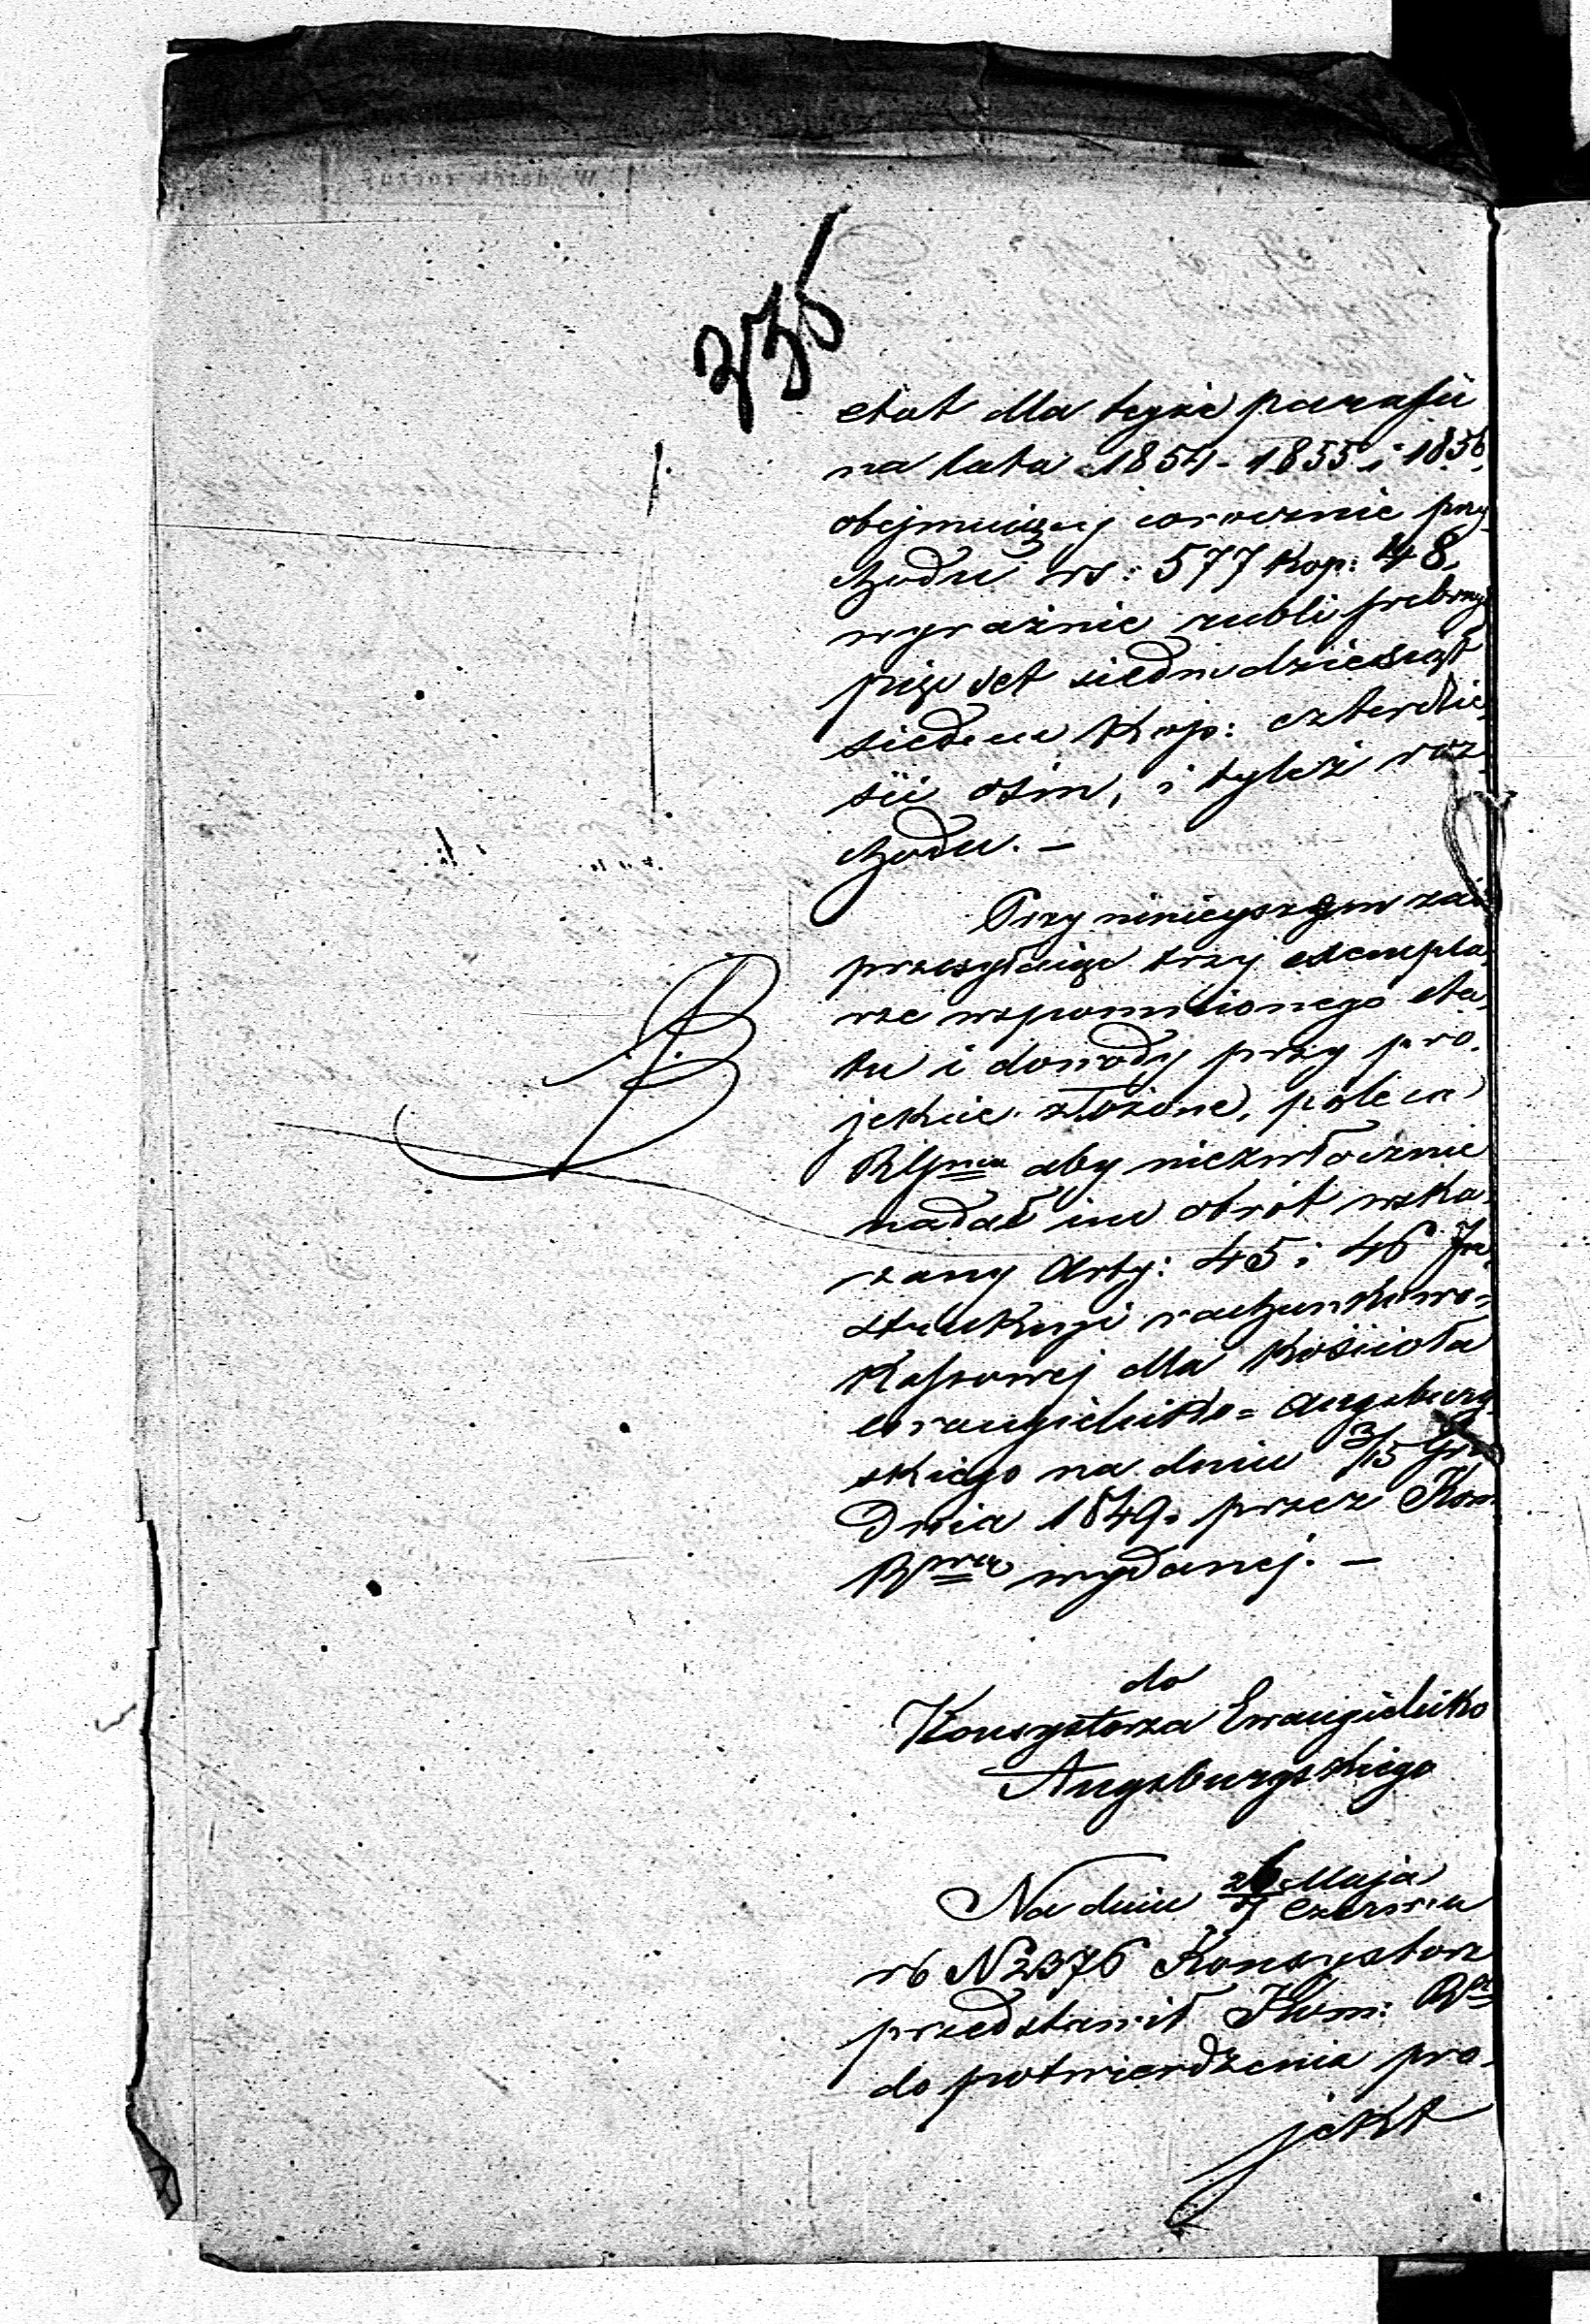 236
etat dla tejże parafii
na lata 1854-1855 i 1856
obejmuiący corocznie przy-
chodu rs: 577 kop: 48.
wyraźnie rubli srebrnych
pięćset siedmdziesiąt
siedem kop: czterdzie-
ści ośm, i tyleż roz-
chodu. —
Przy niniejszym zaś
przesyłaiąc trzy exempla-
rze wspomnionego eta-
tu i dowody przy pro-
jekcie złożone, poleca
aby niezwłocznie
nadał im obrót wska-
zany Arty: 45 i 46 In-
strukcyi rachunkowo=
Kassowej dla Kościoła
ewangielicko= Augsburg-
skiego na dniu 3/15 Gru
dnia 1849. przez Kom
wydanej. —
do
Konsystorza Ewangielicko
Augsburgskiego
Na dniu 26 Maja / 7 Czerwca
rb N 2376 Konsystorz
przedstawił Kom:
do potwierdzenia pro-
jekt